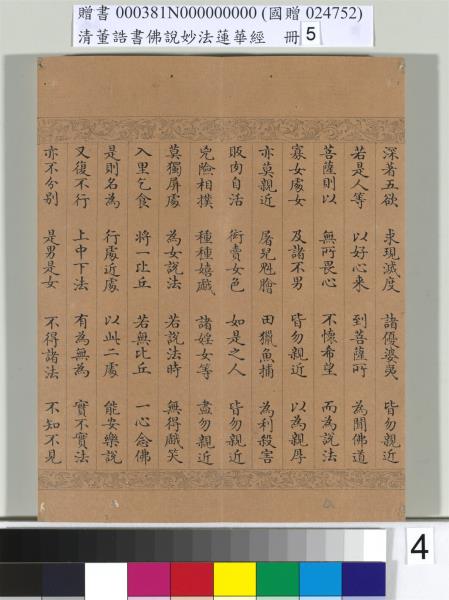 贈書 000381N000000000 (國贈 024752)
清董誥書佛說妙法蓮華經 冊 5
深著五欲 求現滅度 諸優婆夷 皆勿親近
若是人等 以好心來 到菩薩所 為聞佛道
菩薩則以 無所畏心 不懷希望 而為說法
寡女處女 及諸不男 皆勿親近 以為親厚
亦莫親近 屠兒魁膾 田獵魚捕 為利殺害
販肉自活 衒賣女色 如是之人 皆勿親近
兇險相撲 種種嬉戲 諸婬女等 盡勿親近
莫獨屏處 為女說法 若說法時 無得戲笑
入里乞食 將一比丘 若無比丘 一心念佛
是則名為 行處近處 以此二處 能安樂說
又復不行 上中下法 有為無為 實不實法
亦不分別 是男是女 不得諸法 不知不見
4